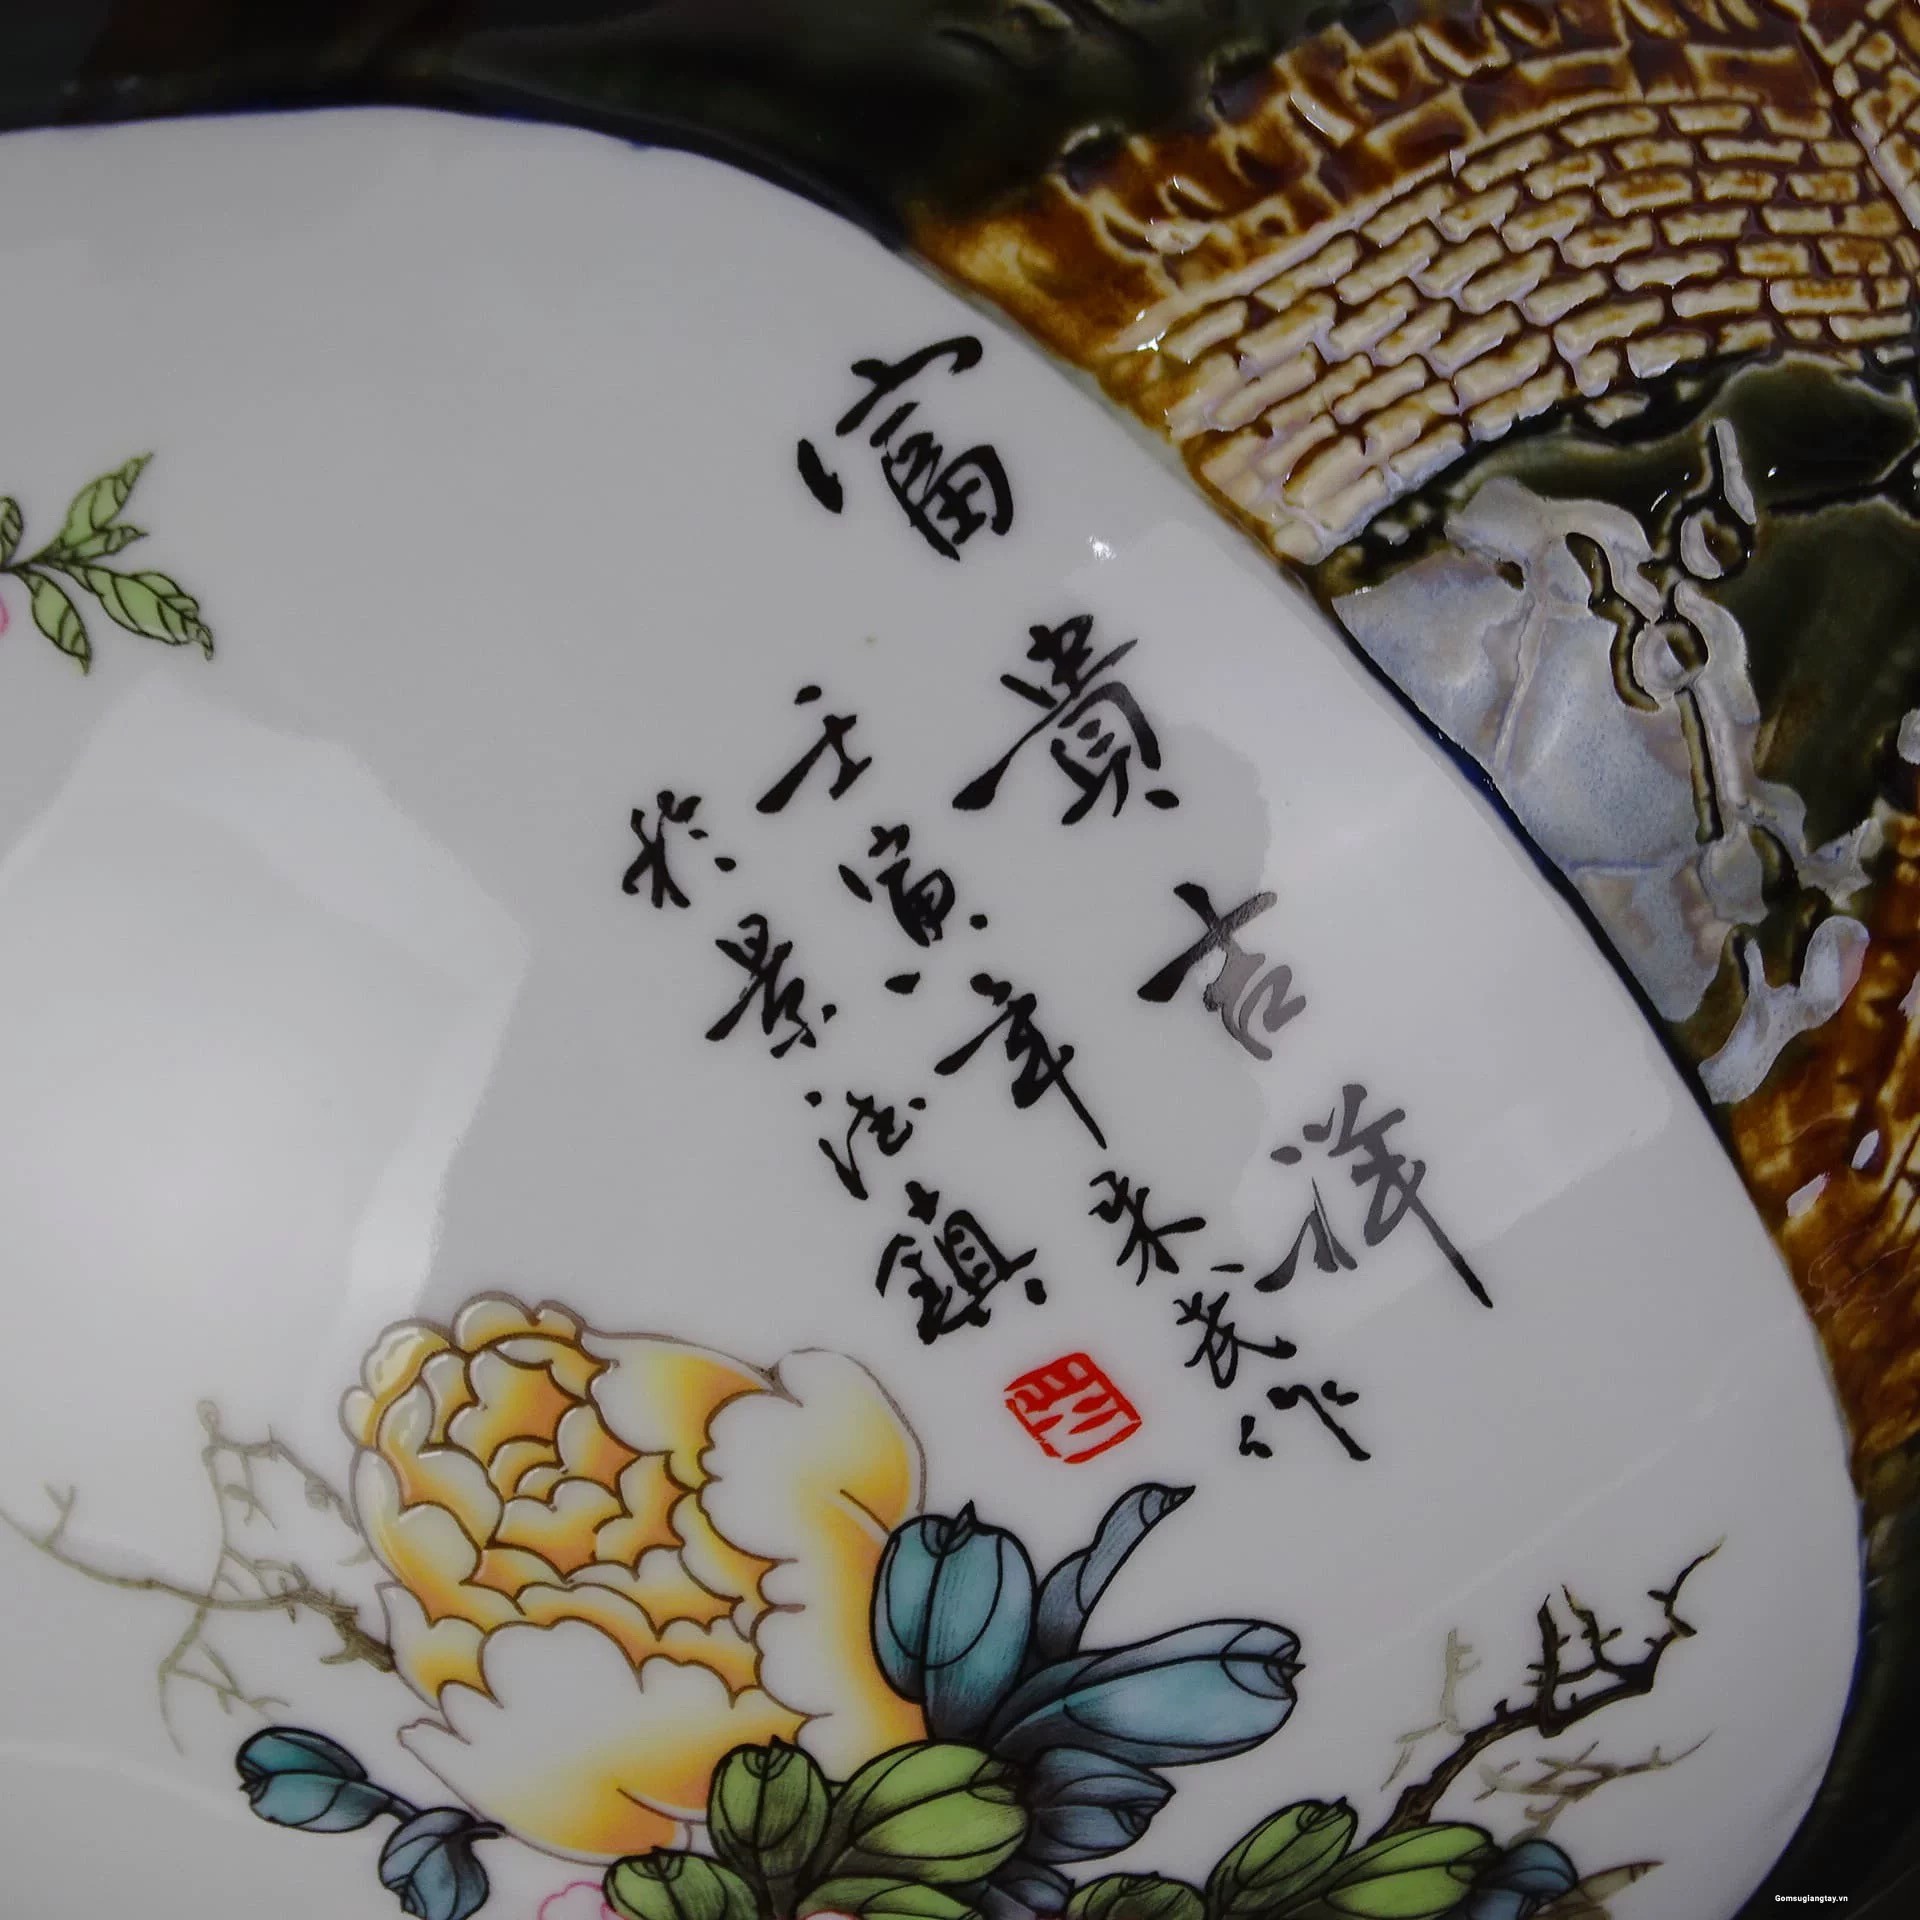 富貴吉祥
壬寅年 作
於景德鎮
Gomsugiangtay.vn